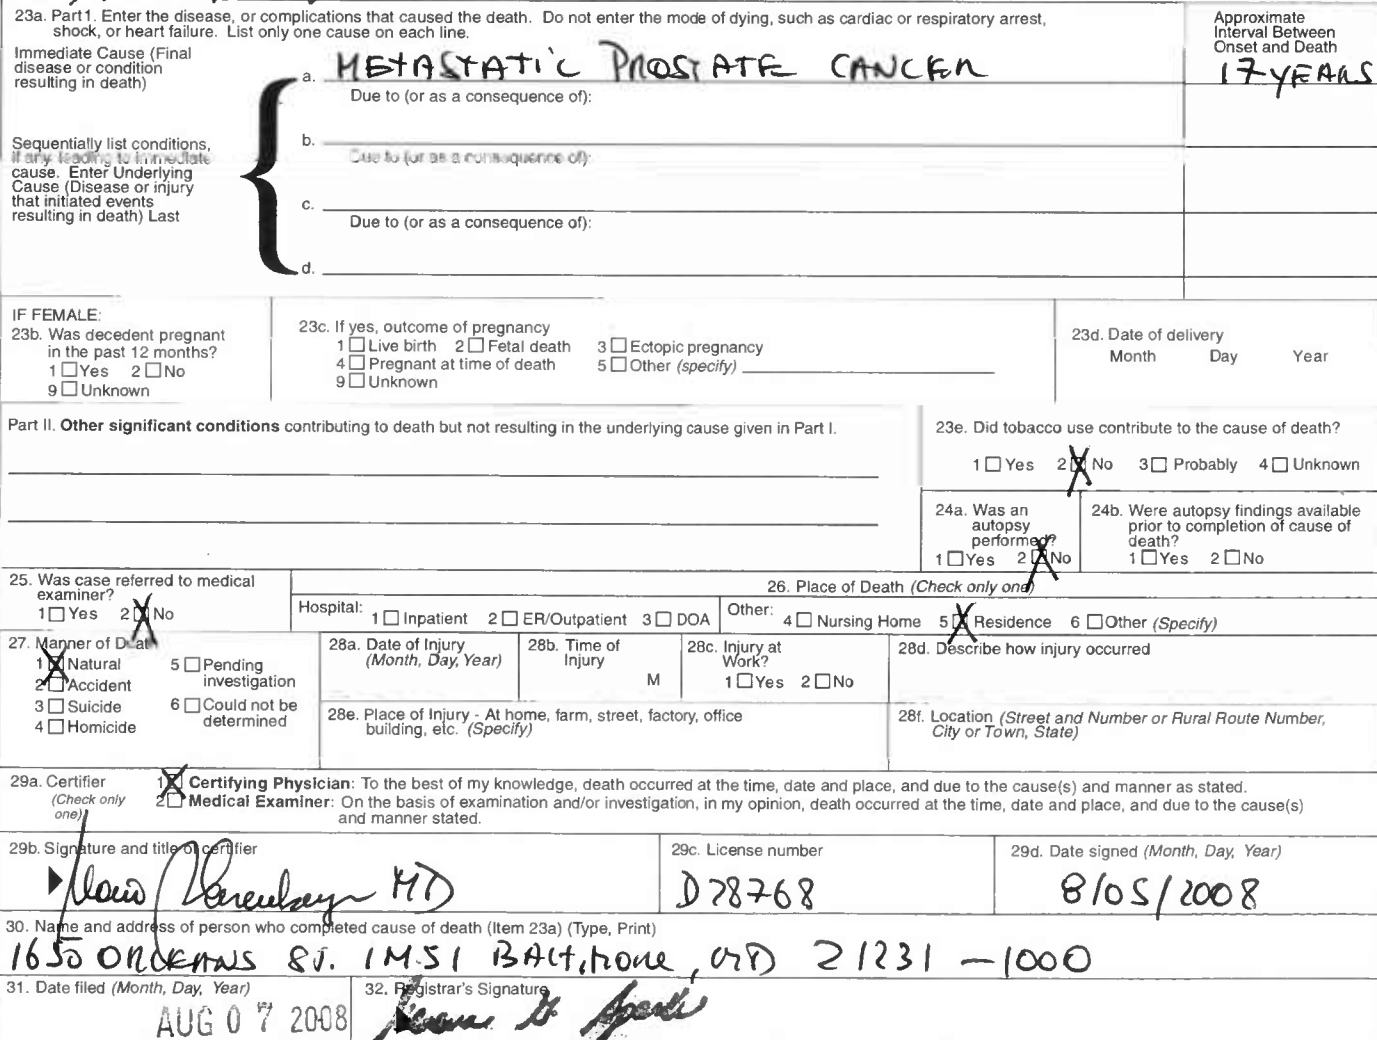 23a. Part1. Enter the disease, or complications that caused the death. Do not enter the mode of dying, such as cardiac or respiratory arrest,
shock, or heart failure. List only one cause on each line.
Approximate
Interval Between
Onset and Death
Immediate Cause (Final
disease or condition
resulting in death)
a. METASTATIC PROSTATE CANCER
17 YEARS
Due to (or as a consequence of):
b.
Sequentially list conditions,
if any leading to immediate
cause. Enter Underlying
Cause (Disease or injury
that initiated events
resulting in death) Last
Due to (or as a consequence of):
c.
Due to (or as a consequence of):
d.
IF FEMALE:
23b. Was decedent pregnant
in the past 12 months?
1 Yes 2 No
9 Unknown
23c. If yes, outcome of pregnancy
1 Live birth 2 Fetal death 3 Ectopic pregnancy
4 Pregnant at time of death 5 Other (specify)
9 Unknown
23d. Date of delivery
Month Day Year
Part II. Other significant conditions contributing to death but not resulting in the underlying cause given in Part I.
23e. Did tobacco use contribute to the cause of death?
1 Yes 2 X No 3 Probably 4 Unknown
24a. Was an
autopsy
performed?
1 Yes 2 X No
24b. Were autopsy findings available
prior to completion of cause of
death?
1 Yes 2 No
25. Was case referred to medical
examiner?
1 Yes 2 X No
26. Place of Death (Check only one)
Hospital: 1 Inpatient 2 ER/Outpatient 3 DOA
Other: 4 Nursing Home 5 X Residence 6 Other (Specify)
27. Manner of Death
1 X Natural
2 Accident
3 Suicide
4 Homicide
5 Pending
investigation
6 Could not be
determined
28a. Date of Injury
(Month, Day, Year)
28b. Time of
Injury
M
28c. Injury at
Work?
1 Yes 2 No
28d. Describe how injury occurred
28e. Place of Injury - At home, farm, street, factory, office
building, etc. (Specify)
28f. Location (Street and Number or Rural Route Number,
City or Town, State)
29a. Certifier
(Check only
one)
1 X Certifying Physician: To the best of my knowledge, death occurred at the time, date and place, and due to the cause(s) and manner as stated.
2 Medical Examiner: On the basis of examination and/or investigation, in my opinion, death occurred at the time, date and place, and due to the cause(s)
and manner stated.
29b. Signature and title of certifier
MD
29c. License number
D28768
29d. Date signed (Month, Day, Year)
8/05/2008
30. Name and address of person who completed cause of death (Item 23a) (Type, Print)
1650 ORLEANS ST. 1M51 BALTIMORE, MD 21231-1000
31. Date filed (Month, Day, Year)
AUG 07 2008
32. Registrar's Signature